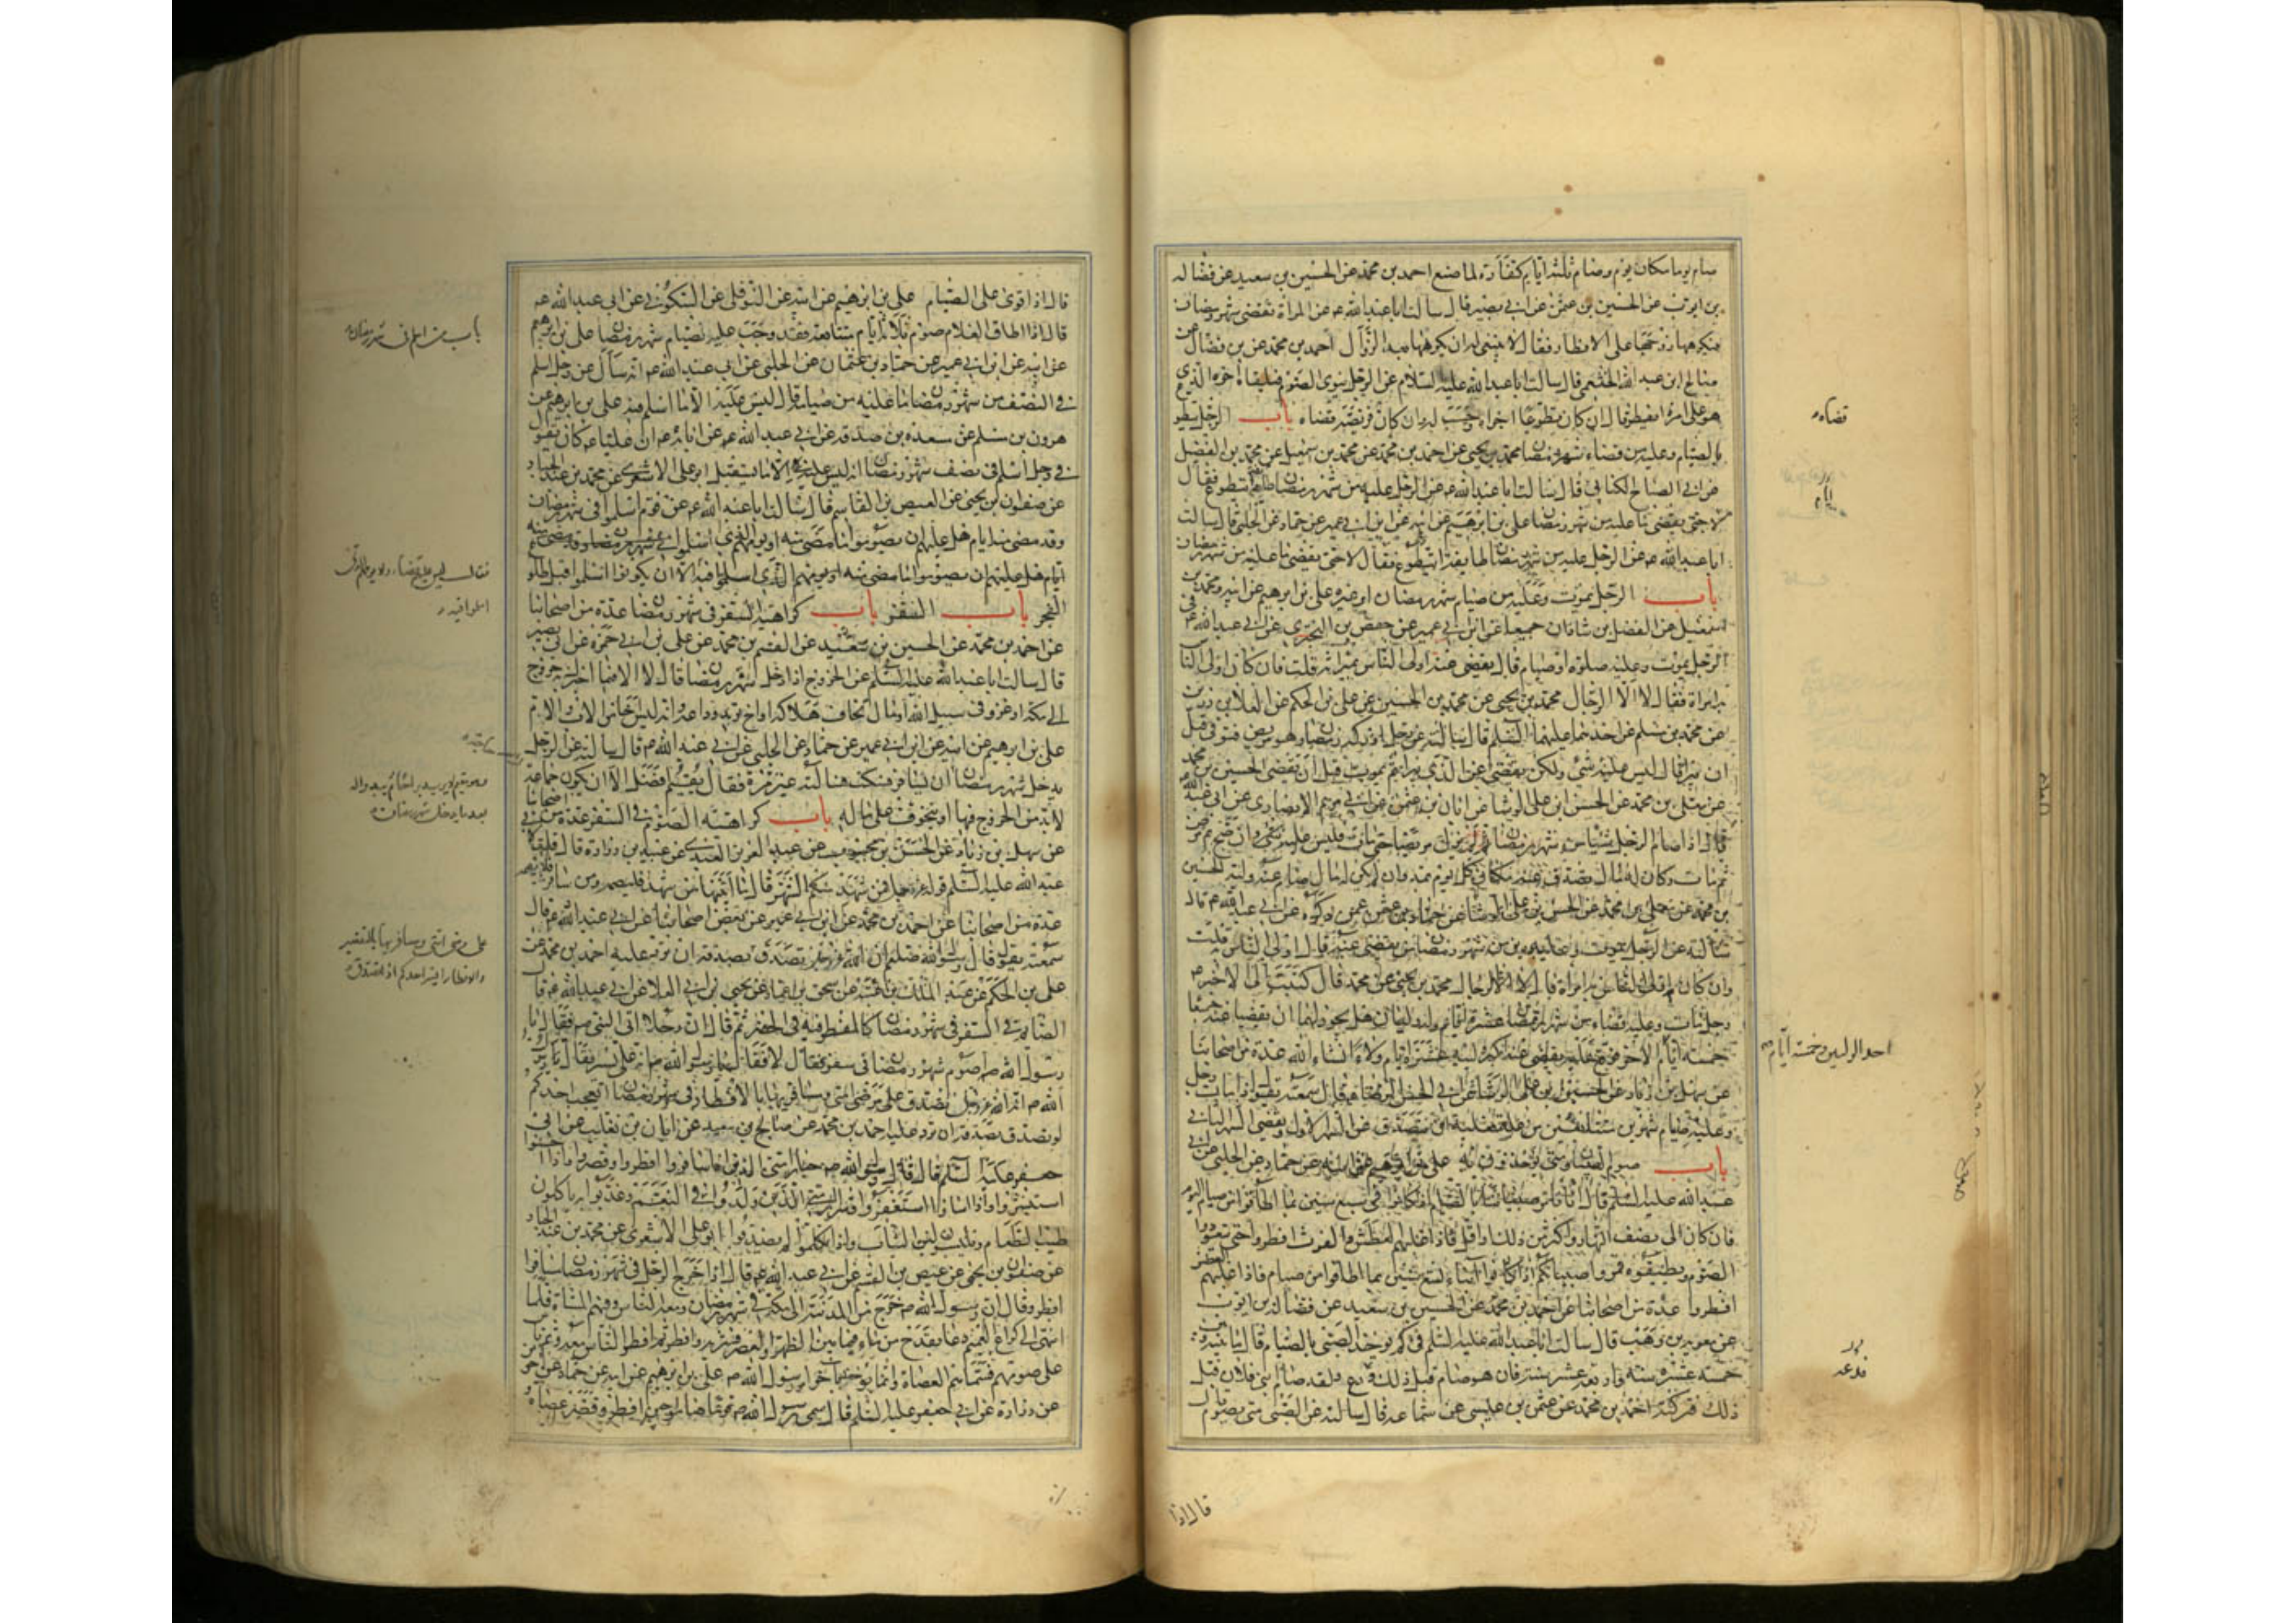 صام يوما مكان يوم وصام ثلثة ايام كفارة لما صنع احمد بن محمد عن الحسين بن سعيد عن فضالة
بن ايوب عن الحسين بن عثمن عن ابى بصير قال سالت اباعبدالله عه عن المراة تقضى شهر رمضان
فيكرهها زوجها على الافطار فقال لا ينبغى له ان يكرهها بعد الزوال احمد بن محمد عن بن فضال عن
صالح بن عبد الله الخثعمى قال سالت اباعبد الله عليه السلام عن الرجل ينوى الصوم فيلقاه اخوه الذى
هو على امره ايفطر قال ان كان تطوعا اجزاه وحسب له وان كان فريضة قضاه باب الرجل يتطوع
بالصيام وعليه من قضاء شهر رمضان محمد بن يحيى عن احمد بن محمد عن محمد بن اسمعيل عن محمد بن الفضيل
عن ابى الصباح الكنانى قال سالت اباعبد الله عه عن الرجل عليه من شهر رمضان ايتطوع فقال
لا حتى يقضى ما عليه من شهر رمضان على بن ابرهيم عن ابيه عن ابن ابى عمير عن حماد عن الحلبى قال سالت
اباعبد الله عه عن الرجل عليه من شهر رمضان طايفة ايتطوع فقال لا حتى يقضى ما عليه من شهر رمضان
باب الرجل يموت وعليه من صيام شهر رمضان او غيره على بن ابرهيم عن ابيه ومحمد بن
اسمعيل عن الفضل بن شاذان جميعا عن ابن ابى عمير عن حفص بن البخترى عن ابى عبد الله عه فى
الرجل يموت وعليه صلوة او صيام قال يقضى عنه اولى الناس بميراثه قلت فان كان اولى الناس
به امراة فقال لا الا الرجال محمد بن يحيى عن محمد بن الحسين عن على بن الحكم عن العلاء بن رزين
عن محمد بن مسلم عن احدهما عليهما السلم قال سالته عن رجل ادركه رمضان وهو مريض فتوفى قبل
ان يبرا قال ليس عليه شئ ولكن يقضى عن الذى يبرا ثم يموت قبل ان يقضى الحسين بن محمد
عن معلى بن محمد عن الحسن بن على الوشا عن ابان بن عثمن عن ابى مريم الانصارى عن ابى عبد الله
قال اذا صام الرجل شيئا من شهر رمضان ثم لم يزل مريضا حتى مات فليس عليه شئ وان صح ثم مرض
ثم مات وكان له مال تصدق عنه مكان كل يوم بمد وان لم يكن له مال صام عنه وليه الحسين
بن محمد عن معلى بن محمد عن الحسن بن على الوشا عن حماد بن عثمن عمن ذكره عن ابى عبد الله عه قال
سالته عن الرجل يموت وعليه دين من شهر رمضان من يقضى عنه قال اولى الناس قلت
وان كان اولى الناس به امراة قال لا الا الرجال محمد بن يحيى عن محمد قال كتبت الى الاخير
رجل مات وعليه قضاء من شهر رمضان عشرة ايام وله وليان هل يجوز لهما ان يقضيا عنه جميعا
خمسة ايام الاخر فوقع عليه يقضى عنه اكبر ولييه عشرة ايام ولاء انشاء الله عدة من اصحابنا
عن سهل بن زياد عن الحسن بن على الوشا عن ابى الحسن الرضا قال سمعته يقول اذا مات رجل
وعليه صيام شهرين متتابعين من علة فعليه ان يتصدق عن الشهر الاول ويقضى الشهر الثانى
باب صوم الصبيان ومتى يوخذون به على بن ابرهيم عن ابيه عن حماد عن الحلبى عن ابى
عبد الله عليه السلم قال انا نامر صبياننا بالصيام اذا كانوا بنى سبع سنين بما اطاقوا من صيام اليوم
فان كان الى نصف النهار او اكثر من ذلك او اقل فاذا غلبهم العطش والغرث افطروا حتى يتعودوا
الصوم ويطيقوه فمروا صبيانكم اذا كانوا ابناء تسع سنين بما اطاقوا من صيام فاذا غلبهم العطش
افطروا عدة من اصحابنا عن احمد بن محمد عن الحسين بن سعيد عن فضالة بن ايوب
عن معوية بن وهب قال سالت اباعبد الله عليه السلم فى كم يوخذ الصبى بالصيام قال ما بينه وبين
خمسة عشرة سنة واربعة عشر سنة فان هو صام قبل ذلك فدعه ولقد صام ابنى فلان قبل
ذلك فتركته احمد بن محمد عن عثمن بن عيسى عن سماعة قال سالته عن الصبى متى يصوم قال
قضاه
احد الوليين وخمسة ايام
فدعه
قال اذا
قال اذا قوى على الصيام على بن ابرهيم عن ابيه عن النوفلى عن السكونى عن ابى عبد الله عه
قال اذا اطاق الغلام صوم ثلاثة ايام متتابعة فقد وجبت عليه صيام شهر رمضان على بن ابرهيم
عن ابيه عن ابن ابى عمير عن حماد بن عثمان عن الحلبى عن ابى عبد الله عه انه سال عن رجل اسلم
فى النصف من شهر رمضان ما عليه من صيامه قال ليس عليه الا ما اسلم فيه على بن ابرهيم عن
هرون بن مسلم عن مسعدة بن صدقة عن ابى عبد الله عه عن ابائه عه ان عليا عه كان يقول
فى رجل اسلم فى نصف شهر رمضان انه ليس عليه الا ما يستقبل ابو على الاشعرى عن محمد بن عبد الجبار
عن صفوان بن يحيى عن العيص بن القاسم قال سالت اباعبد الله عه عن قوم اسلموا فى شهر رمضان
وقد مضى منه ايام هل عليهم ان يصوموا ما مضى منه او يومهم الذى اسلموا فى شهر رمضان وقد مضى منه
ايام هل عليهم ان يصوموا ما مضى منه او يومهم الذى اسلموا فيه الا ان يكونوا اسلموا قبل طلوع
الفجر باب السفر باب كراهية السفر فى شهر رمضان عدة من اصحابنا
عن احمد بن محمد عن الحسين بن سعيد عن القسم بن محمد عن على بن ابى حمزة عن ابى بصير
قال سالت اباعبد الله عليه السلم عن الخروج اذا دخل شهر رمضان قال لا الا فيما اخبرك خروج
الى مكة او غزو فى سبيل الله او مال تخاف هلاكه او اخ تريد وداعه وانه ليس اخا من الاب والام
على بن ابرهيم عن ابيه عن ابن ابى عمير عن حماد عن الحلبى عن ابى عبد الله عه قال سالته عن الرجل
يدخل شهر رمضان ان يسافر فسكت فسالته غير مرة فقال يقيم افضل الا ان يكون حاجة
لابد من الخروج فيها او يتخوف على ماله باب كراهية الصوم فى السفر عدة من اصحابنا
عن سهل بن زياد عن الحسن بن محبوب عن عبد العزيز العبدى عن عبيد بن زرارة قال قلت لابى
عبد الله عليه السلم قوله عز وجل فمن شهد منكم الشهر قال ما ابينها من شهد فليصمه ومن سافر فلا يصمه
عدة من اصحابنا عن احمد بن محمد عن ابن ابى عمير عن بعض اصحابنا عن ابى عبد الله عه قال
سمعته يقول قال رسول الله صلعم ان الله عز وجل تصدق بصدقة ان ترد عليه احمد بن محمد عن
على بن الحكم عن عبد الملك بن عتبة عن اسحق بن عمار عن يحيى بن ابى العلا عن ابى عبد الله عه قال
الصائم فى السفر فى شهر رمضان كالمفطر فيه فى الحضر ثم قال ان رجلا اتى النبى صه فقال يا
رسول الله صه اصوم شهر رمضان فى سفر فقال لا فقال يا رسول الله صه انه على يسير فقال رسول
الله صه ان الله عز وجل تصدق على مرضى امتى ومسافريها بالافطار فى شهر رمضان ايعجب احدكم
لو تصدق بصدقة ان ترد عليه احمد بن محمد عن صالح بن سعيد عن ابان بن تغلب عن ابى
جعفر عليه السلم قال قال رسول الله صه خيار امتى الذين اذا سافروا افطروا وقصروا واذا احسنوا
استبشروا واذا اساؤا استغفروا وشرار امتى الذين ولدوا فى النعم وغذوا به ياكلون
طيب الطعام ويلبسون لين الثياب واذا تكلموا لم يصدقوا ابو على الاشعرى عن محمد بن عبد الجبار
عن صفوان بن يحيى عن عيص بن القسم عن ابى عبد الله عه قال اذا خرج الرجل فى شهر رمضان مسافرا
افطر وقال ان رسول الله صه خرج من المدينة الى مكة فى شهر رمضان ومعه الناس وفيهم المشاة فلما
انتهى الى كراع الغميم دعا بقدح من ماء فيما بين الظهر والعصر فشربه وافطر ثم افطر الناس معه وتم ناس
على صومهم فسماهم العصاة وانما يوخذ باخر امر رسول الله صه على بن ابرهيم عن ابيه عن حماد عن حريز
عن زرارة عن ابى جعفر عليه السلم قال سمى رسول الله صه قوما صاموا حين افطر وقصر عصاة
باب من اسلم فى شهر رمضان
فقال ليس عليهم قضاء ولا يومهم الذى
اسلموا فيه
وهو مقيم لا يريد براحا ثم يبدو له
بعد ما يدخل شهر رمضان
على مرضى امتى ومسافريها بالتقصير
والافطار ايسر احدكم اذا تصدق